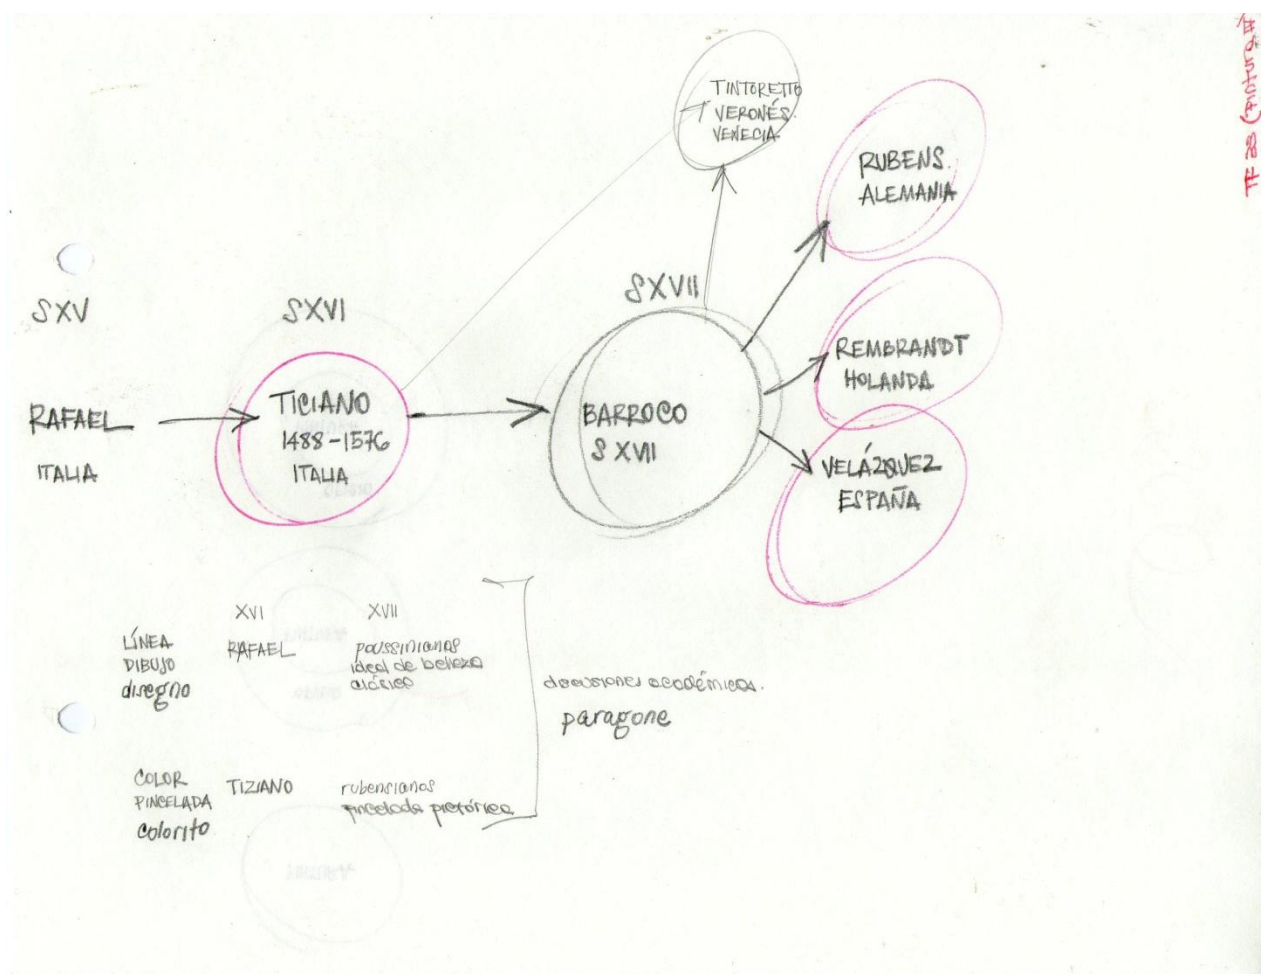 TINTORETTO
VERONÉS.
VENECIA
RUBENS.
ALEMANIA
SXV
SXVI
SXVII
RAFAEL
ITALIA
TICIANO
1488-1576
ITALIA
BARROCO
SXVII
REMBRANDT
HOLANDA
VELÁZQUEZ
ESPAÑA
XVI
XVII
LÍNEA
DIBUJO
disegno
RAFAEL
poussinianos
ideal de belleza
clásico
discusiones académicas.
paragone
COLOR
PINCELADA
colorito
TIZIANO
rubensianos
pincelada pictórica